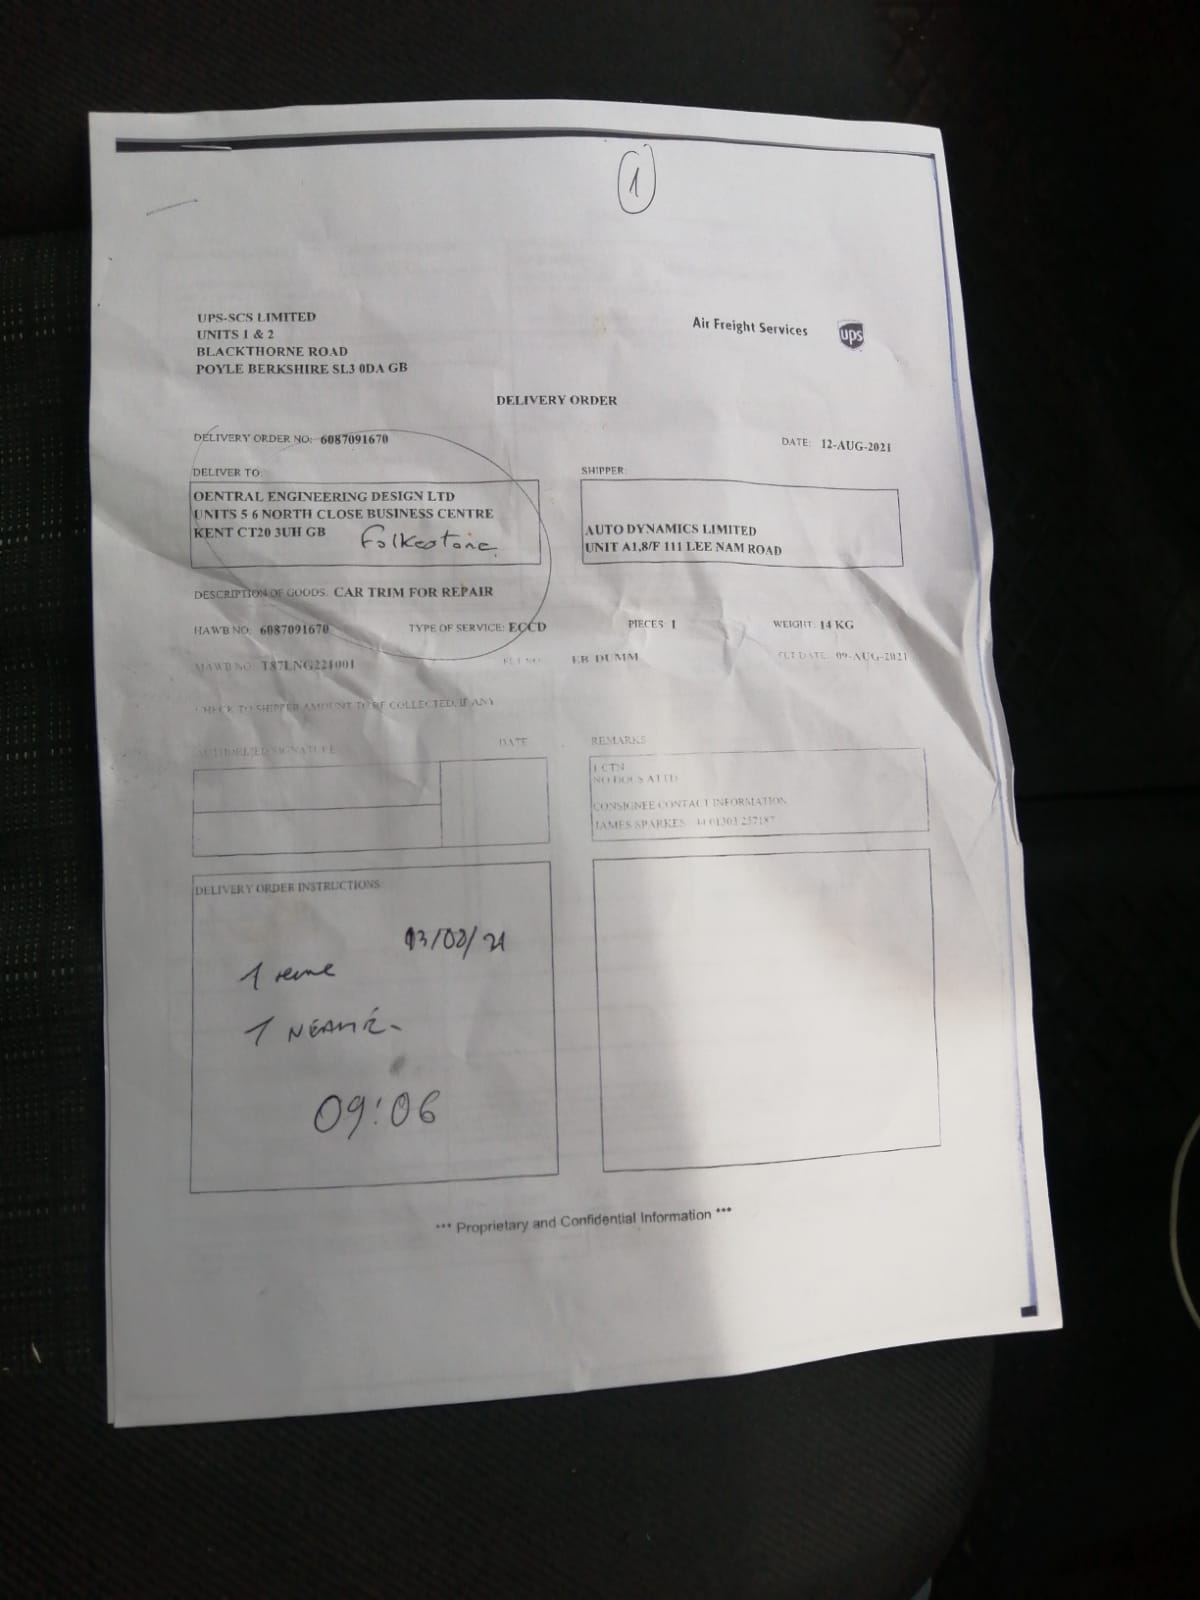 1
UPS-SCS LIMITED
UNITS 1 & 2
BLACKTHORNE ROAD
POYLE BERKSHIRE SL3 0DA GB
Air Freight Services
ups
DELIVERY ORDER
DELIVERY ORDER NO: 6087091670
DATE: 12-AUG-2021
DELIVER TO:
OENTRAL ENGINEERING DESIGN LTD
UNITS 5 6 NORTH CLOSE BUSINESS CENTRE
KENT CT20 3UH GB Folkestone
SHIPPER:
AUTO DYNAMICS LIMITED
UNIT A1,8/F 111 LEE NAM ROAD
DESCRIPTION OF GOODS: CAR TRIM FOR REPAIR
HAWB NO: 6087091670 TYPE OF SERVICE: ECCD PIECES: 1 WEIGHT: 14 KG
MAWB NO: T87LNG221001 FLT NO: EB DUMM FLT DATE: 09-AUG-2021
CHECK TO SHIPPER AMOUNT TO BE COLLECTED, IF ANY
AUTHORIZED SIGNATURE DATE
REMARKS
1 CTN
NO DOCS ATTD
CONSIGNEE CONTACT INFORMATION
JAMES SPARKES 44 01303 257187
DELIVERY ORDER INSTRUCTIONS:
13/08/21
1
1
09:06
*** Proprietary and Confidential Information ***